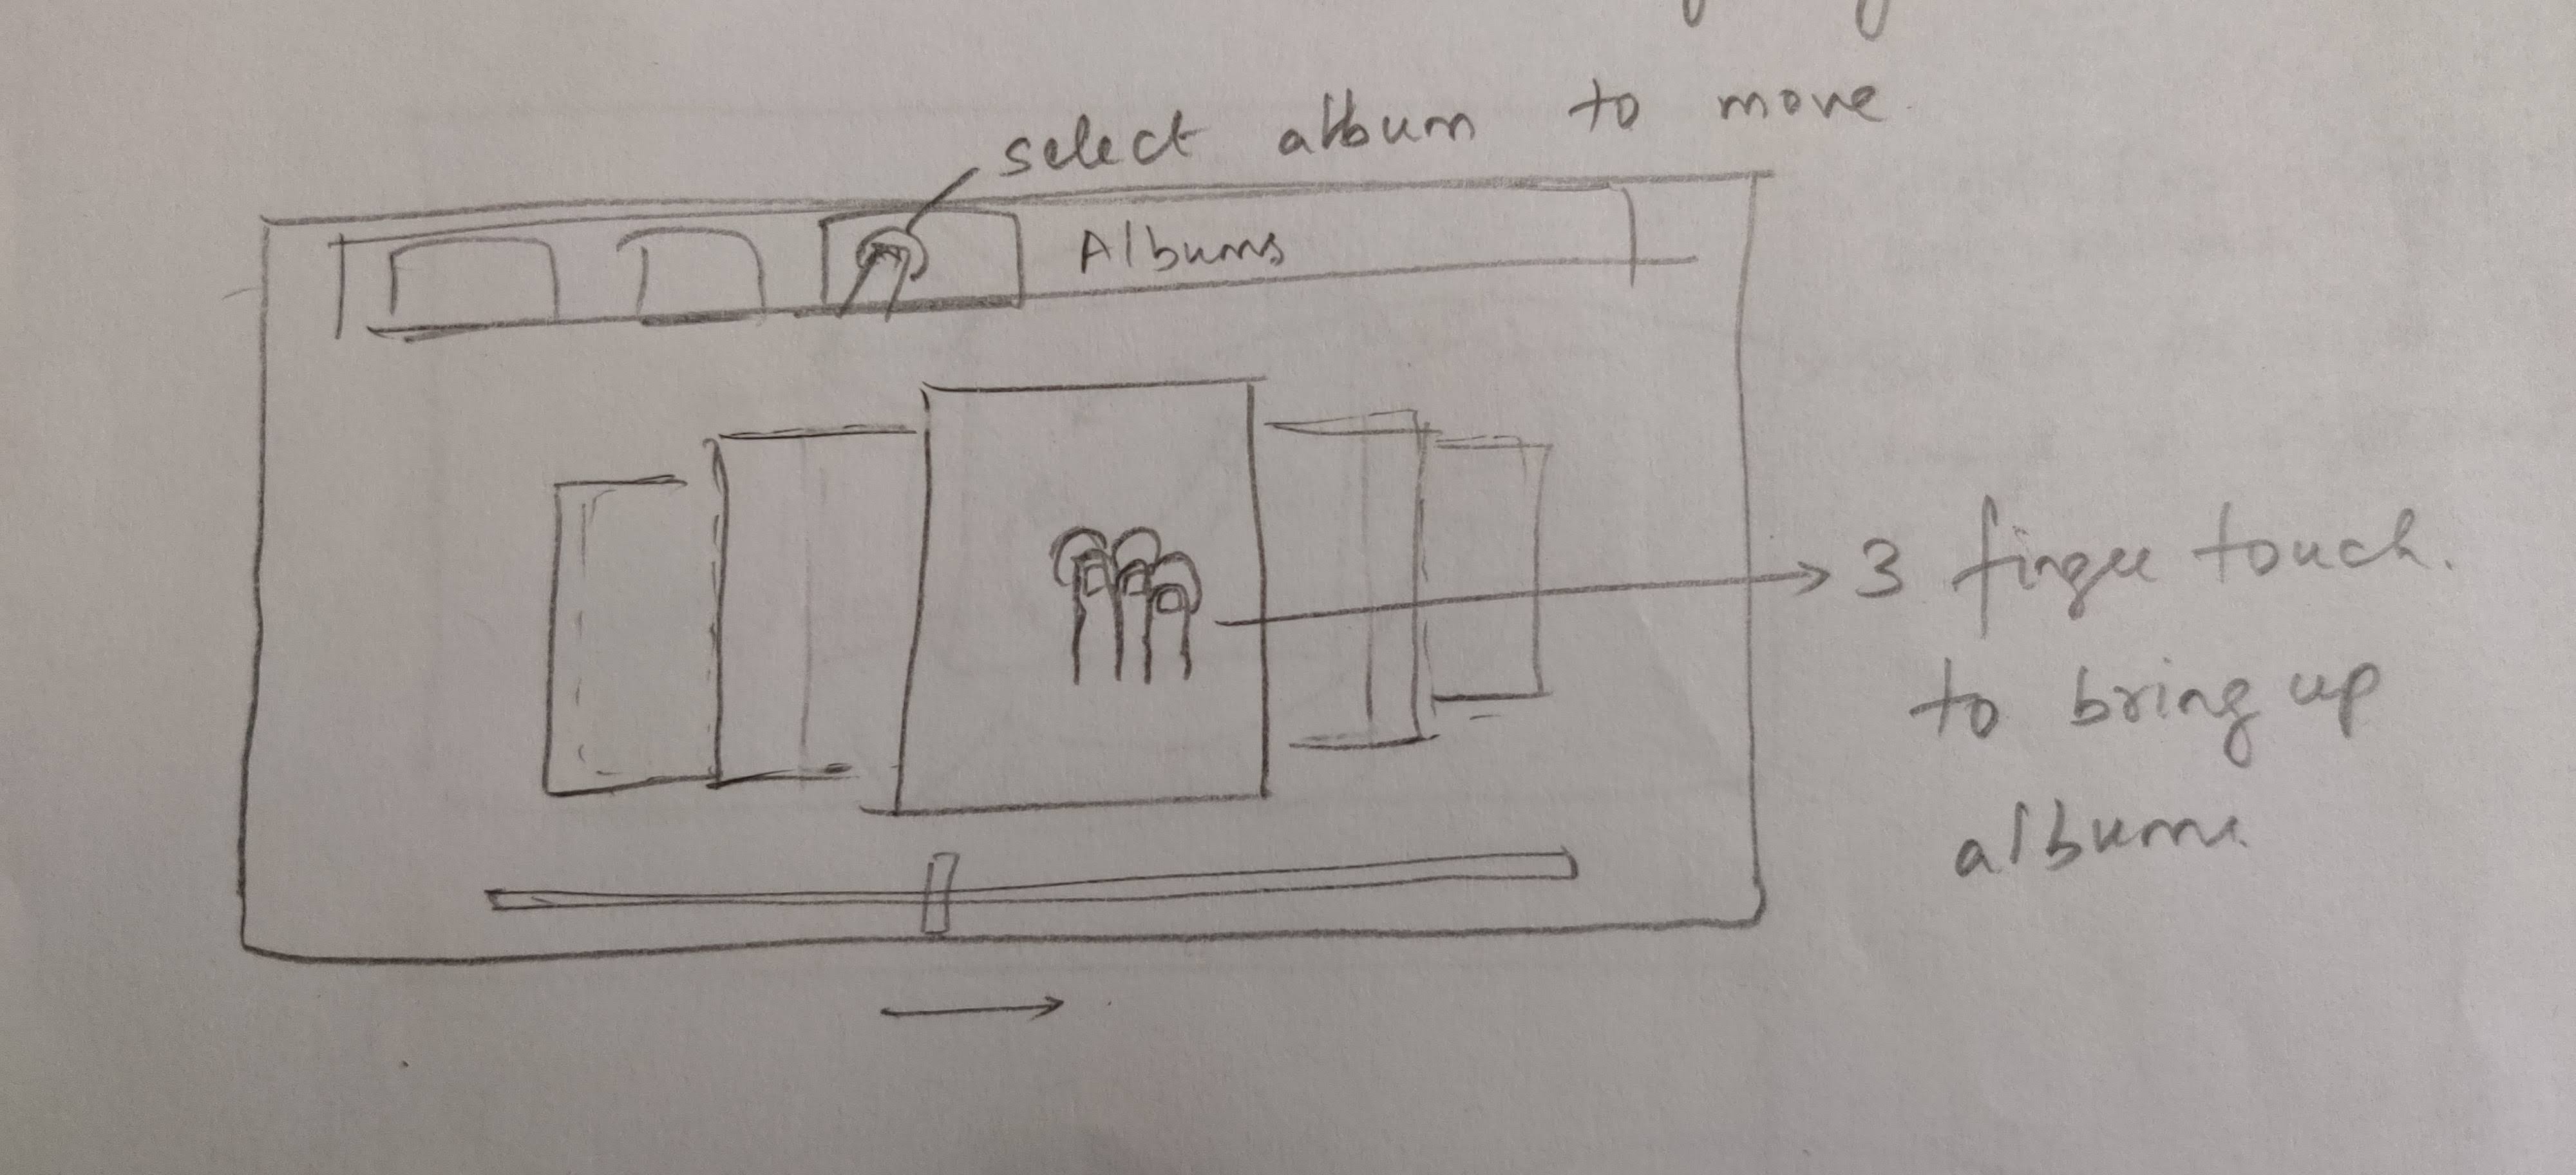 select album to move
Albums
3 finger touch.
to bring up
albums